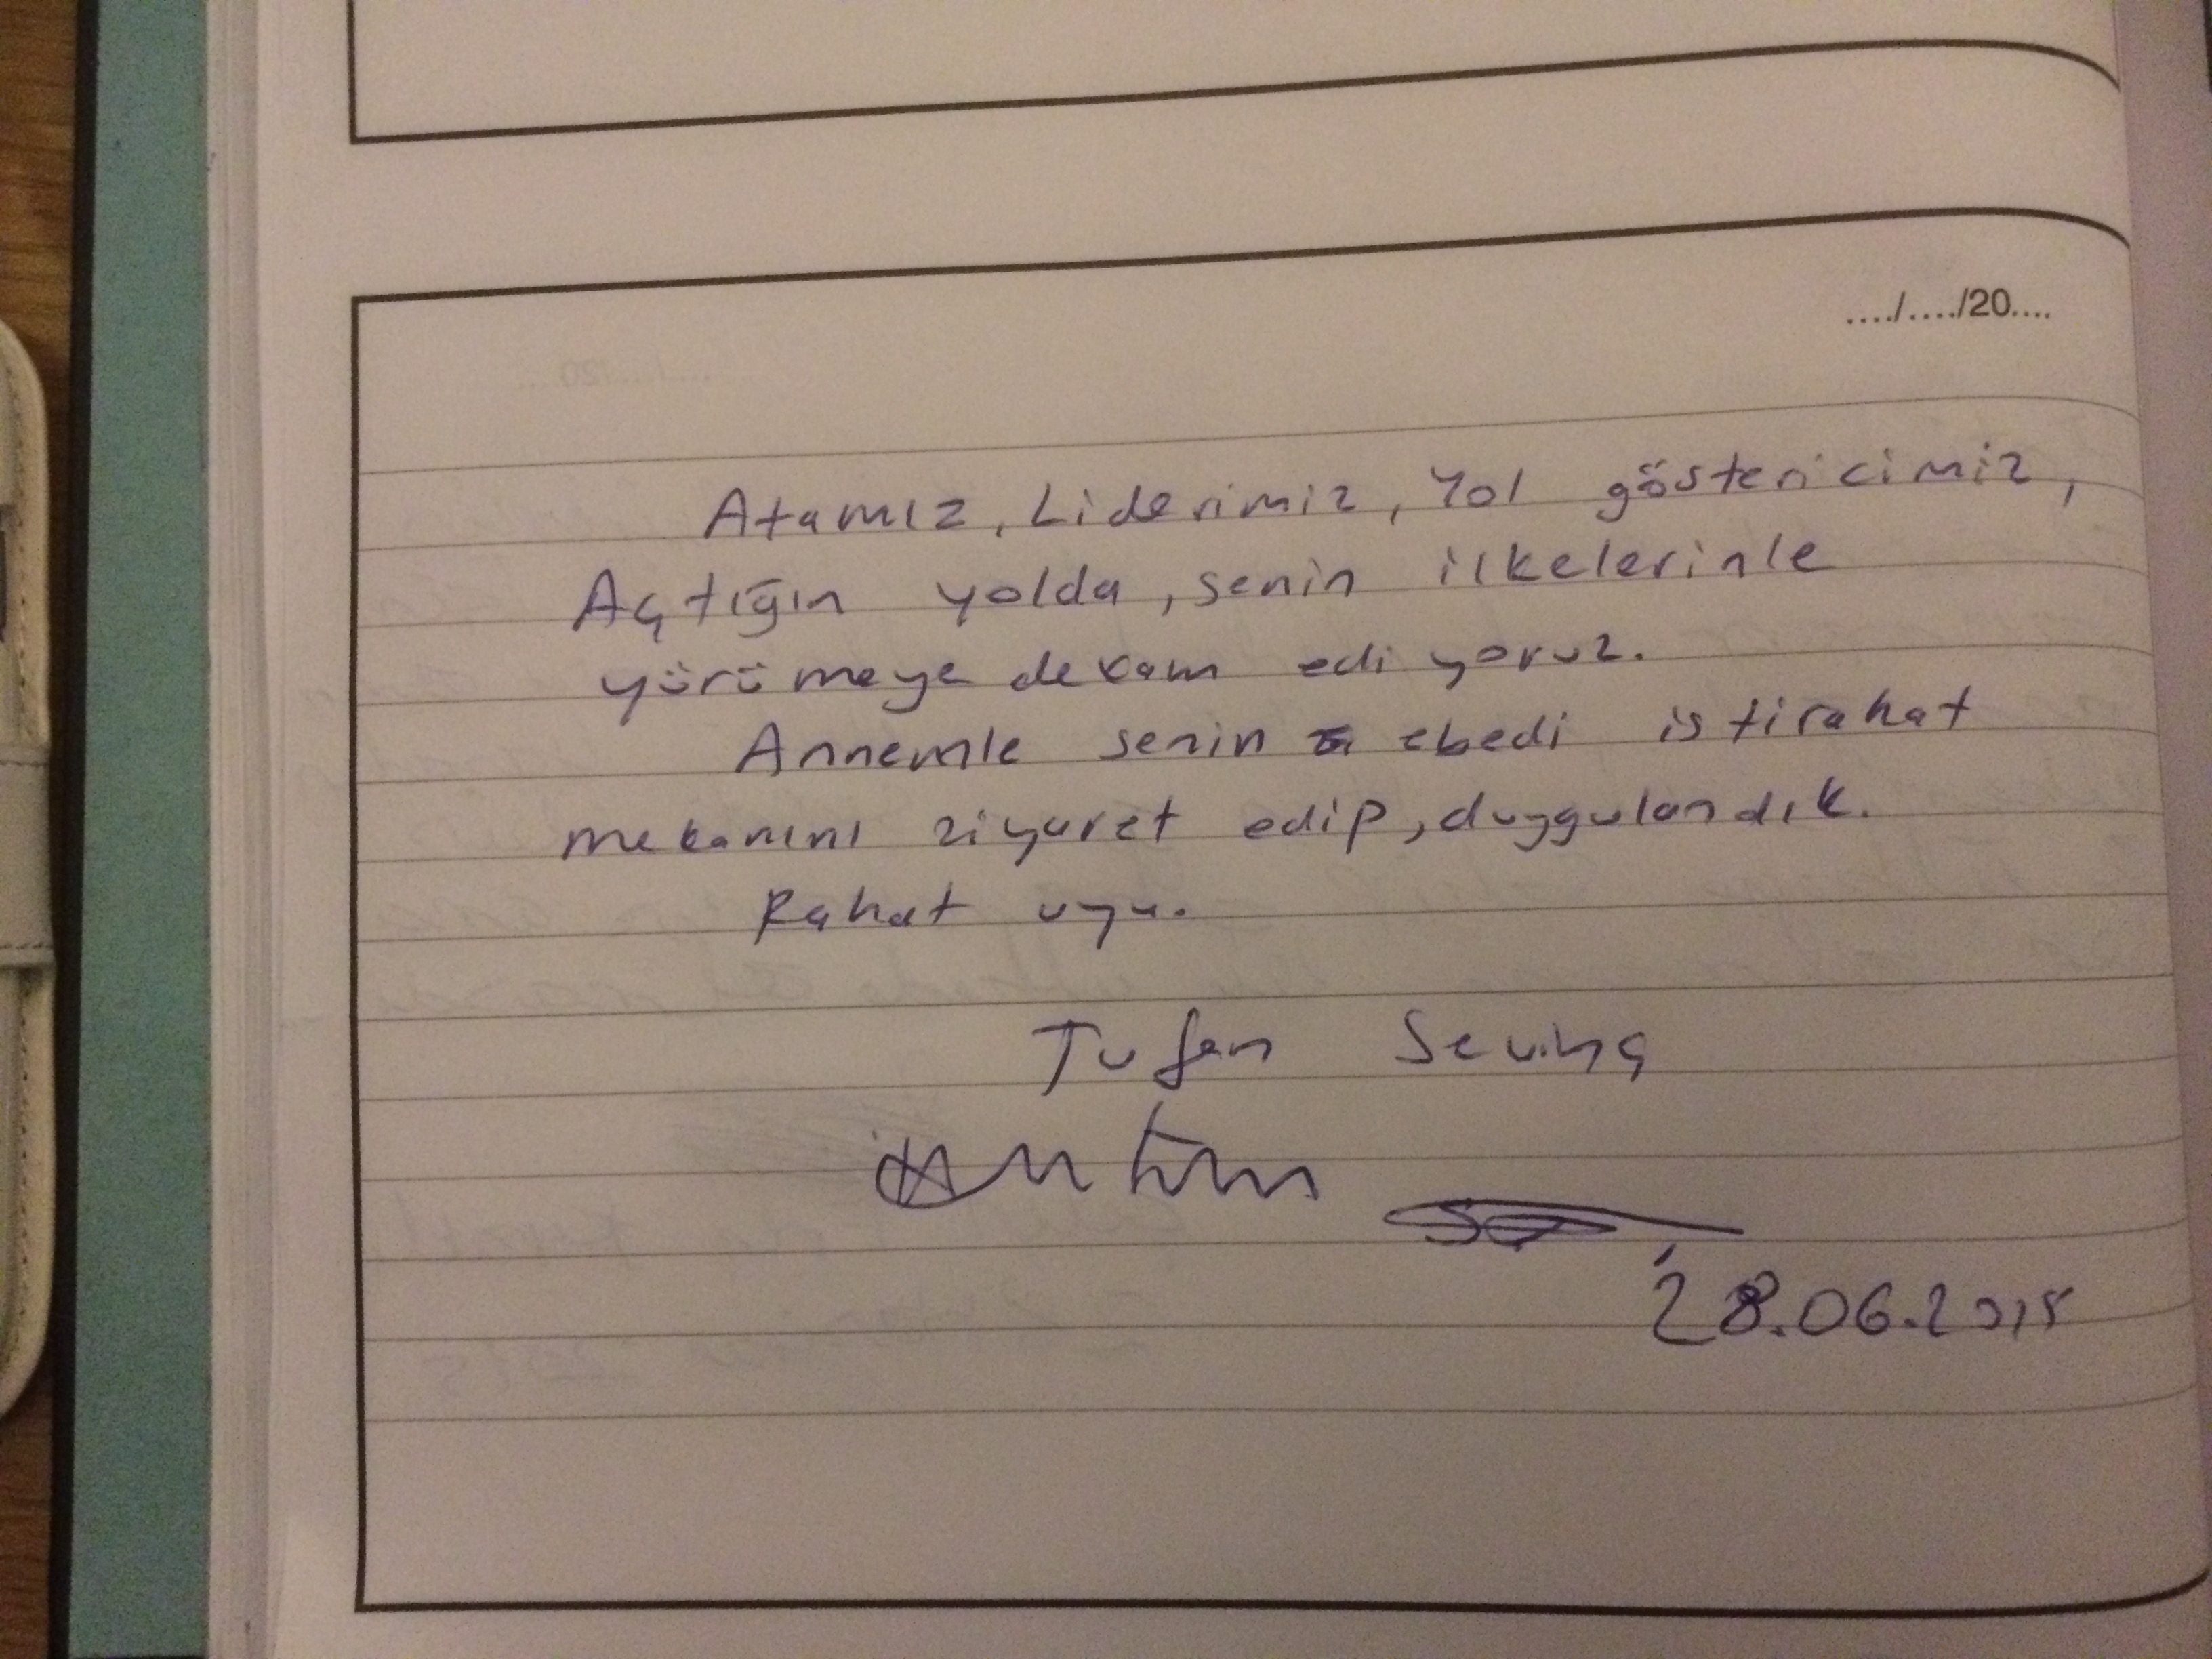 ..../..../20....
Atamız, Liderimiz, Yol göstericimiz,
Açtığın yolda, senin ilkelerinle
yürümeye devam ediyoruz.
Annemle senin ebedi istirahat
mekanını ziyaret edip, duygulandık.
Rahat uyu.
Tufan Sevinç
28.06.2015